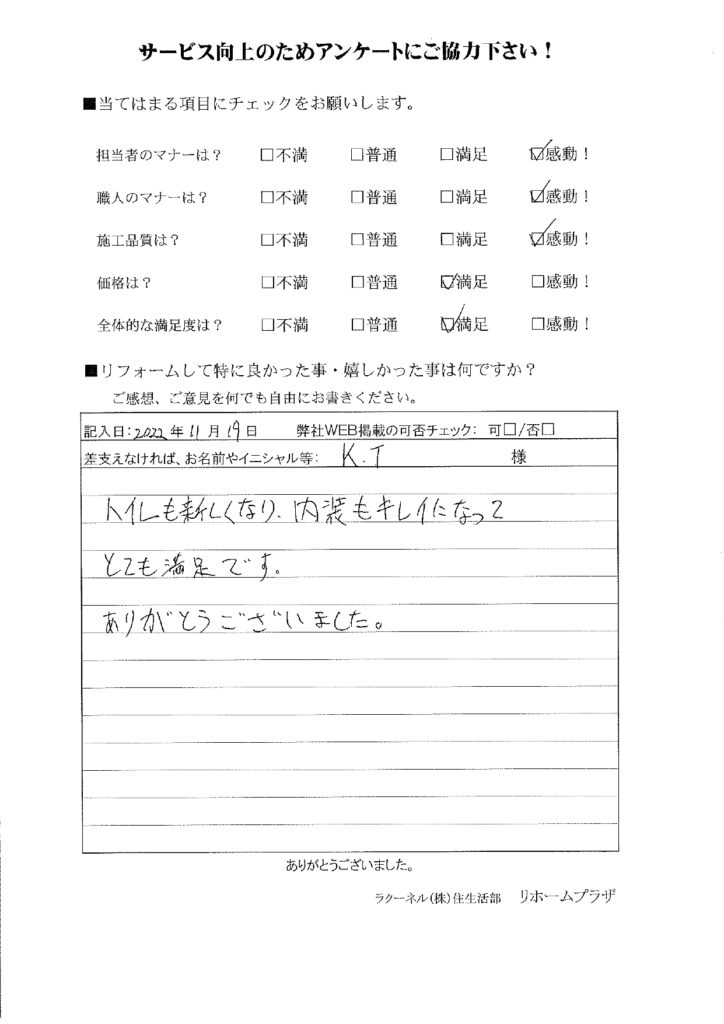 サービス向上のためアンケートにご協力下さい！
■当てはまる項目にチェックをお願いします。
担当者のマナーは？ □不満 □普通 □満足 ☑感動！
職人のマナーは？ □不満 □普通 □満足 ☑感動！
施工品質は？ □不満 □普通 □満足 ☑感動！
価格は？ □不満 □普通 ☑満足 □感動！
全体的な満足度は？ □不満 □普通 ☑満足 □感動！
■リフォームして特に良かった事・嬉しかった事は何ですか？
ご感想、ご意見を何でも自由にお書きください。
記入日：2022年11月19日 弊社WEB掲載の可否チェック： 可□/否□
差支えなければ、お名前やイニシャル等： K.T 様
トイレも新しくなり、内装もキレイになって
とても満足です。
ありがとうございました。
ありがとうございました。
ラクーネル（株）住生活部 リホームプラザ